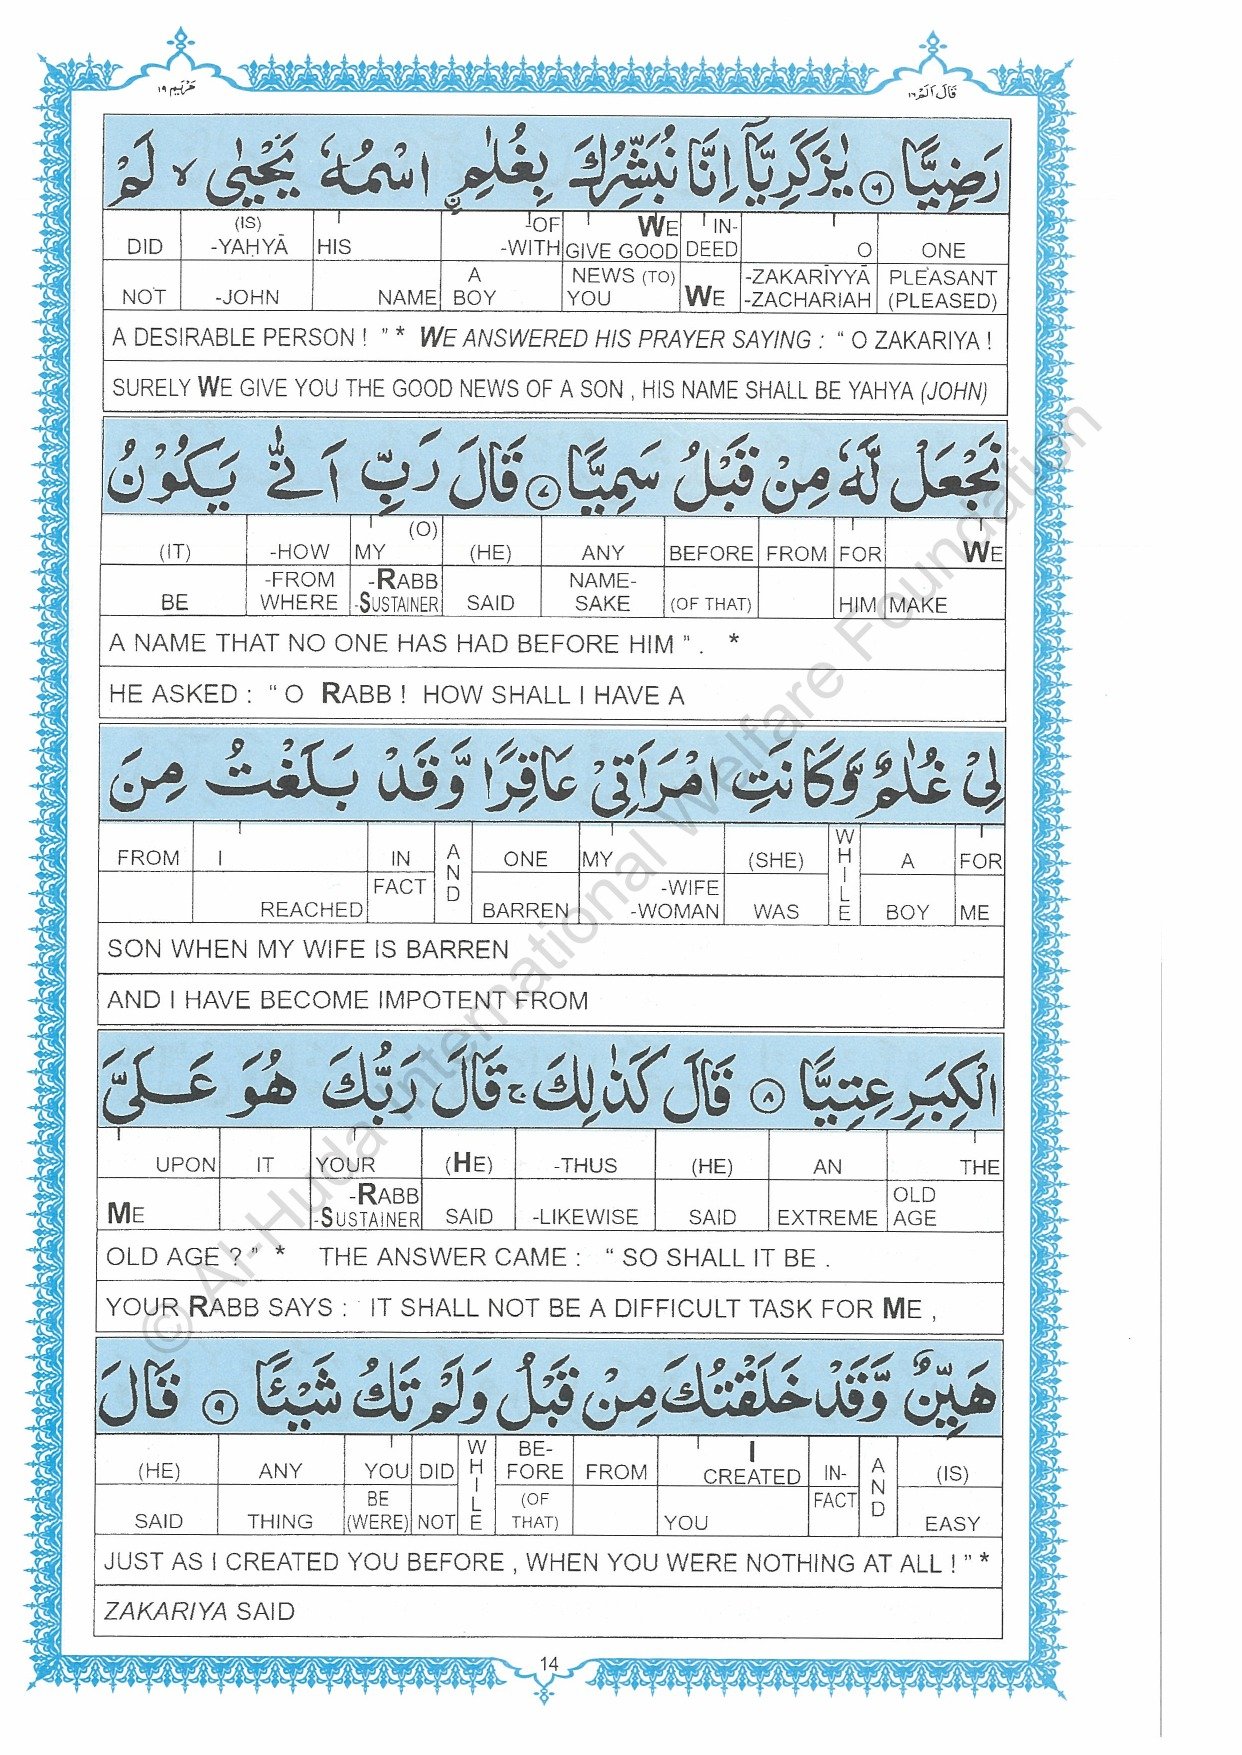 مريم ١٩
قال الم ١٦
رَضِيًّا ۶ يٰزَكَرِيَّآ اِنَّا نُبَشِّرُكَ بِغُلٰمِ ۨ اسْمُهٗ يَحْيٰى ۙ لَمْ
DID (IS) -YAḤYĀ HIS -OF -WITH WE GIVE GOOD IN-DEED O ONE
NOT -JOHN NAME A BOY NEWS (TO) YOU WE -ZAKARĪYYĀ -ZACHARIAH PLEASANT (PLEASED)
A DESIRABLE PERSON ! ” * WE ANSWERED HIS PRAYER SAYING : “ O ZAKARIYA !
SURELY WE GIVE YOU THE GOOD NEWS OF A SON , HIS NAME SHALL BE YAHYA (JOHN)
نَجْعَلْ لَّهٗ مِنْ قَبْلُ سَمِيًّا ۷ قَالَ رَبِّ اَنّٰى يَكُوْنُ
(IT) -HOW MY (O) (HE) ANY BEFORE FROM FOR WE
BE -FROM WHERE -RABB -SUSTAINER SAID NAME-SAKE (OF THAT) HIM MAKE
A NAME THAT NO ONE HAS HAD BEFORE HIM ” . *
HE ASKED : “ O RABB ! HOW SHALL I HAVE A
لِيْ غُلٰمٌ وَّكَانَتِ امْرَاَتِيْ عَاقِرًا وَّقَدْ بَلَغْتُ مِنَ
FROM I IN AND ONE MY (SHE) WHILE A FOR
REACHED FACT BARREN -WIFE -WOMAN WAS BOY ME
SON WHEN MY WIFE IS BARREN
AND I HAVE BECOME IMPOTENT FROM
الْكِبَرِ عِتِيًّا ۸ قَالَ كَذٰلِكَ ۚ قَالَ رَبُّكَ هُوَ عَلَيَّ
UPON IT YOUR (HE) -THUS (HE) AN THE
ME -RABB -SUSTAINER SAID -LIKEWISE SAID EXTREME OLD AGE
OLD AGE ? ” * THE ANSWER CAME : “ SO SHALL IT BE .
YOUR RABB SAYS : IT SHALL NOT BE A DIFFICULT TASK FOR ME ,
هَيِّنٌ وَّقَدْ خَلَقْتُكَ مِنْ قَبْلُ وَلَمْ تَكُ شَيْئًا ۹ قَالَ
(HE) ANY YOU DID WHILE BE-FORE FROM I CREATED IN- AND (IS)
SAID THING BE (WERE) NOT (OF THAT) YOU FACT EASY
JUST AS I CREATED YOU BEFORE , WHEN YOU WERE NOTHING AT ALL ! ” *
ZAKARIYA SAID
14
© Al-Huda International Welfare Foundation